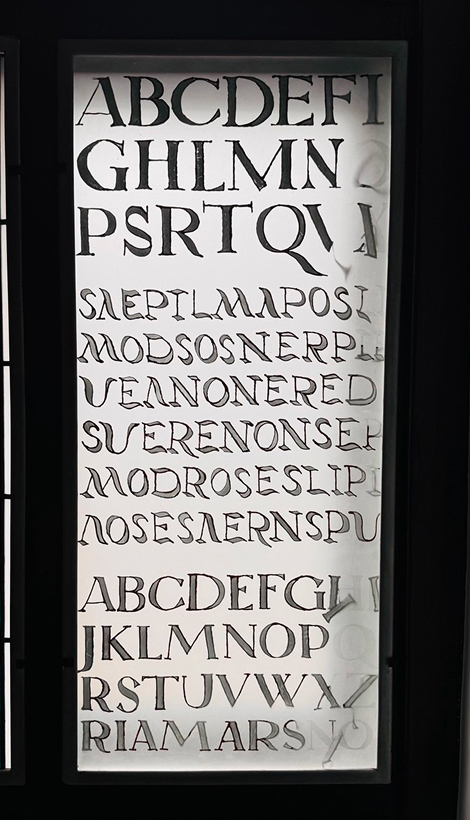 ABCDEFI
GHLMNO
PSRTQVA
SAEPILMAPOSI
MODSOSNERPLE
VEANONERED
SUERENONSEP
MODROSESLIPI
AOSESAERNSPU
ABCDEFGHI
JKLMNOPQ
RSTUVWXZ
RIAMARSNO